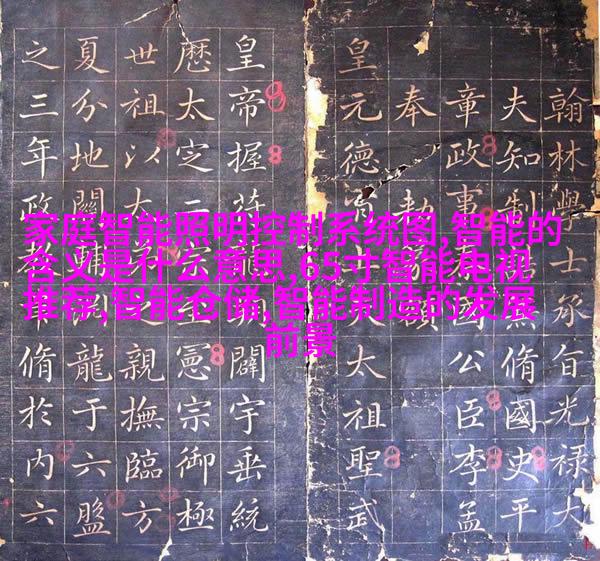 家庭智能照明控制系统图,智能的
含义是什么意思,65寸智能电视
推荐,智能仓储,智能制造的发展
前景
翰林學士承旨光祿大
夫知制兼脩國史平
章政事公臣李孟
奉勅
皇元德太祖聖武
皇帝握符闢宇垂統
曆太定憲宗御極
世祖以大親撫臨方
夏分地關龍于六盤
之三年政脩於內六